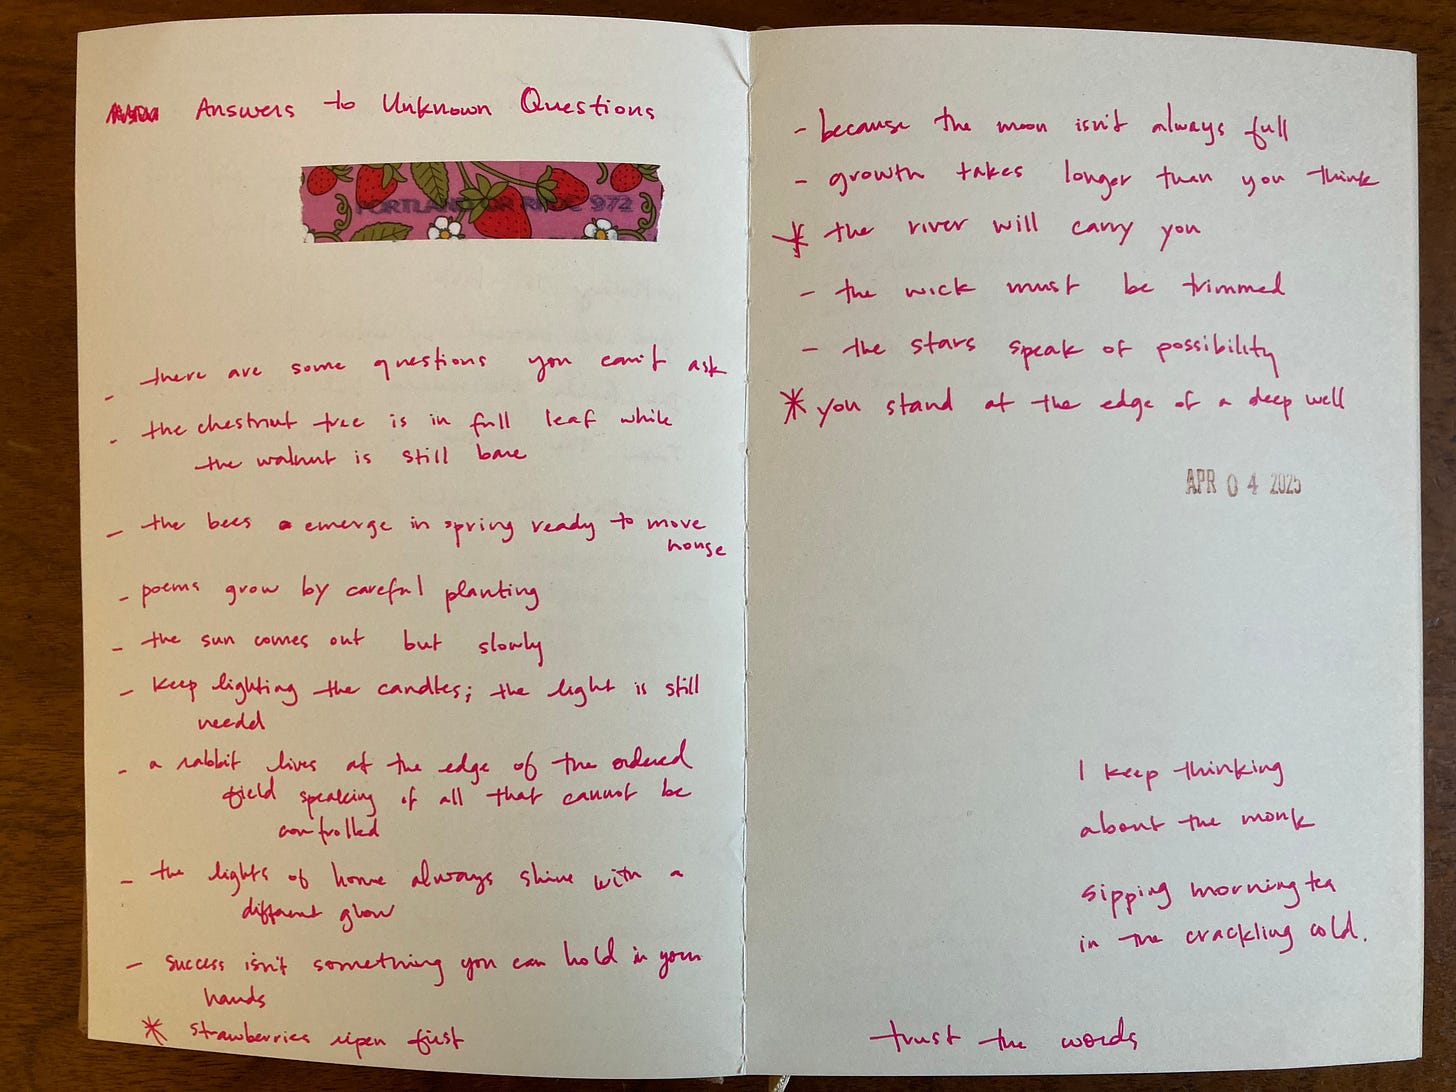 Answers to Unknown Questions
PORTLAND OR 972
- there are some questions you can't ask
- the chestnut tree is in full leaf while
the walnut is still bare
- the bees emerge in spring ready to move
house
- poems grow by careful planting
- the sun comes out but slowly
- keep lighting the candles; the light is still
needed
- a rabbit lives at the edge of the ordered
field speaking of all that cannot be
controlled
- the lights of home always shine with a
different glow
- success isn't something you can hold in your
hands
* strawberries ripen first
- because the moon isn't always full
- growth takes longer than you think
* the river will carry you
- the wick must be trimmed
- the stars speak of possibility
* you stand at the edge of a deep well
APR 04 2025
I keep thinking
about the monk
sipping morning tea
in the crackling cold.
trust the words